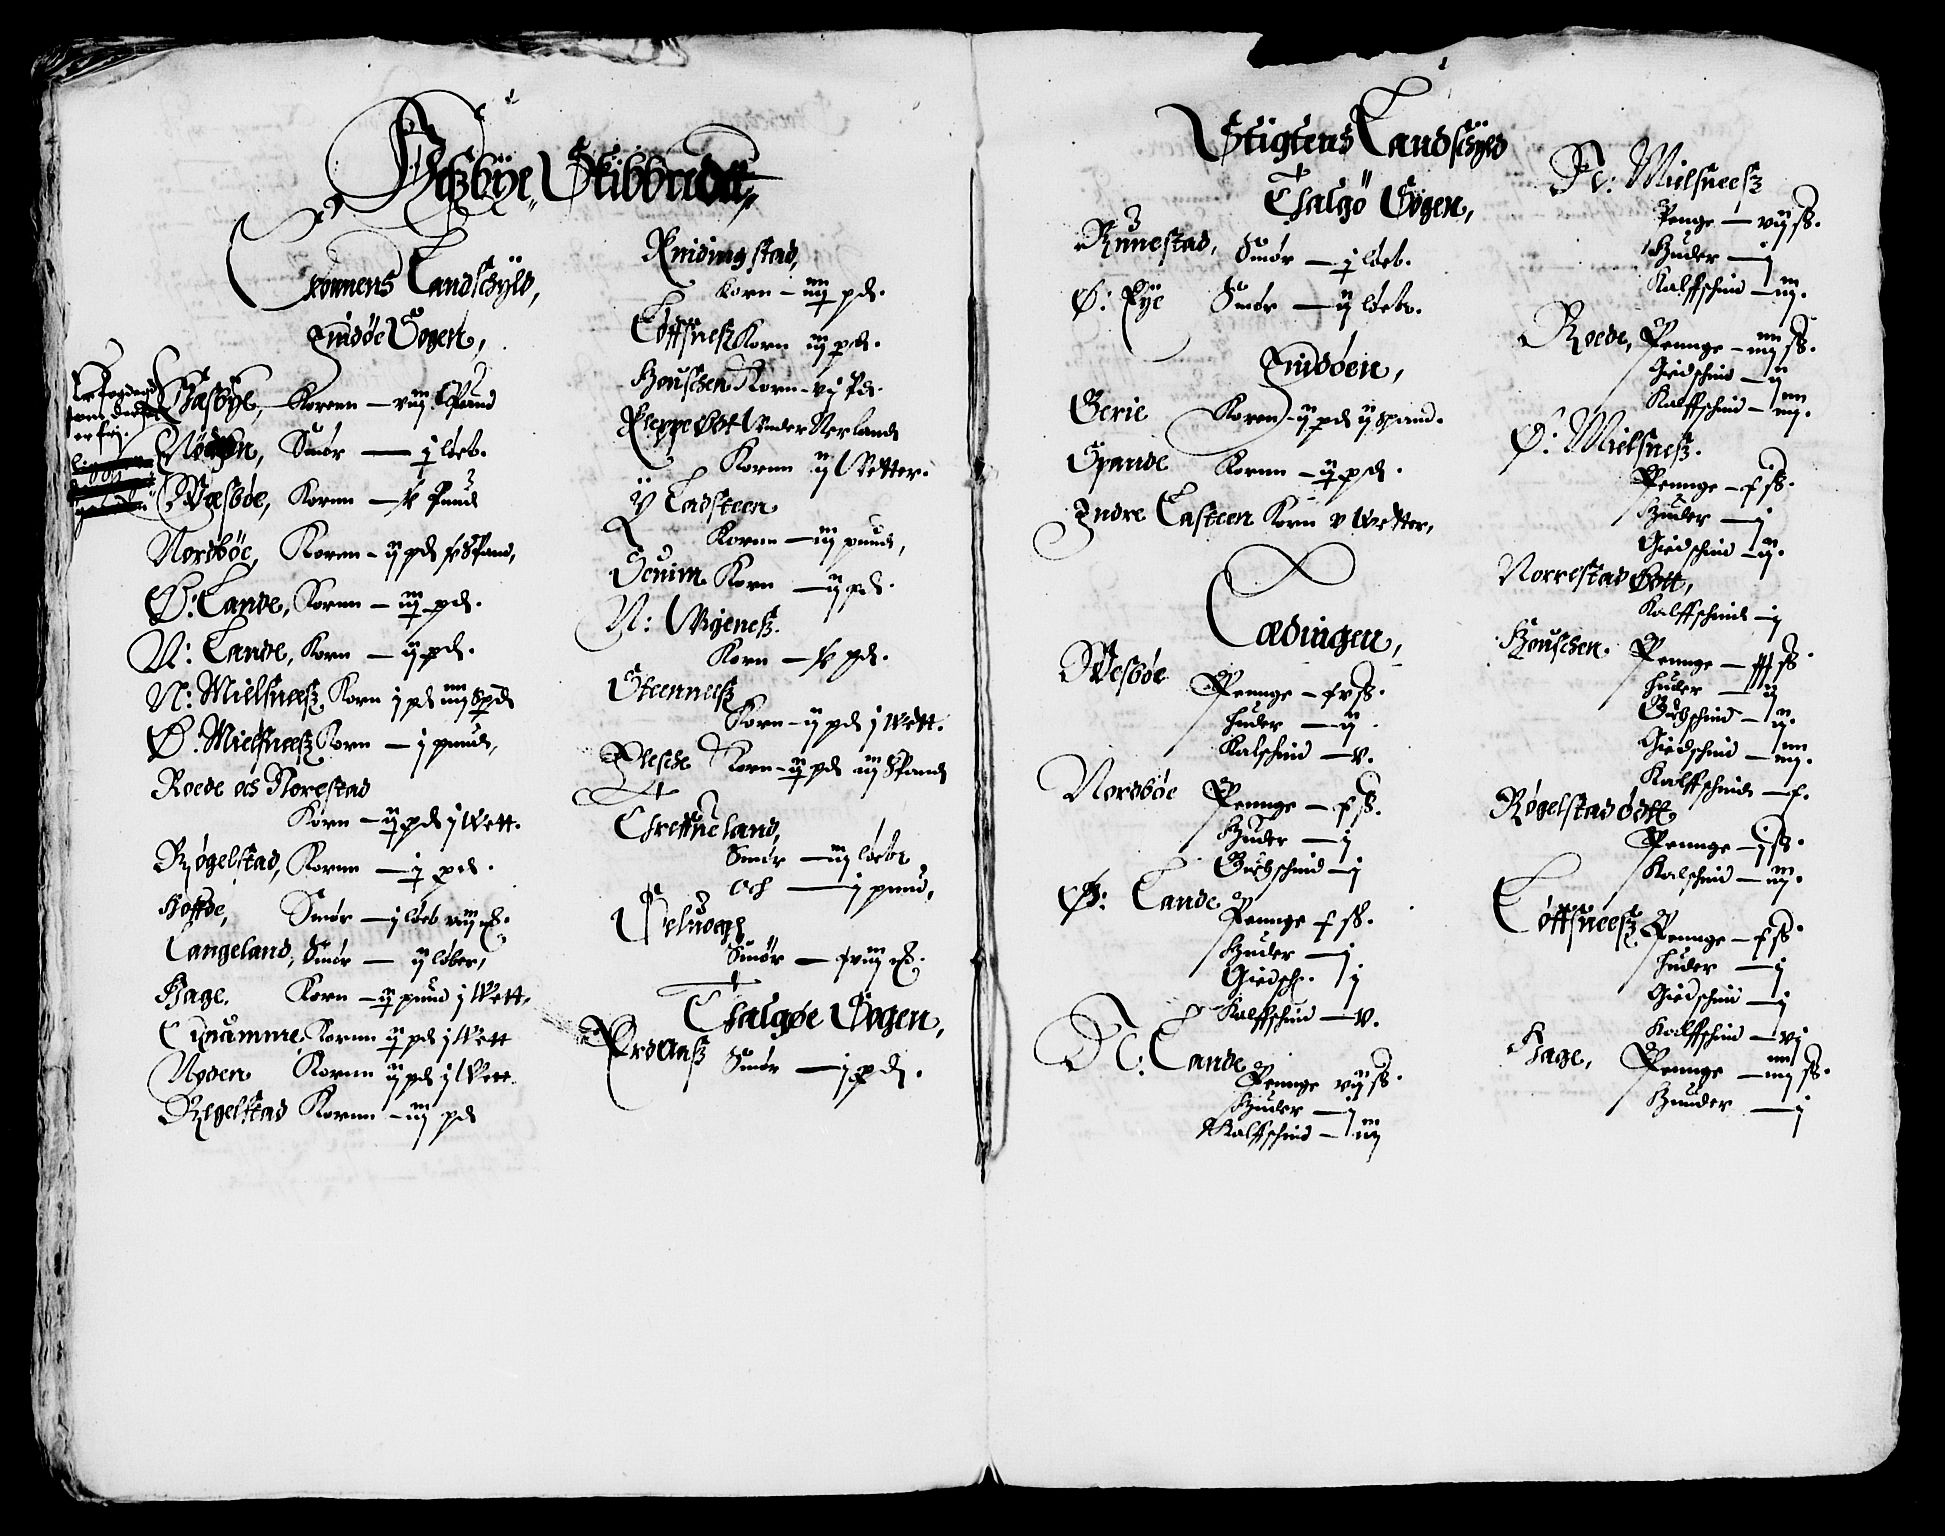 Hesbye Skibbredtt,
Cronnens Landschyld,
Findøe Sogen,
Hæsbye, Koren — viij Pund
er frj.
Nøden, Smør — j løeb.
Wæsbøe, Koren — x Pund
Nordbøe, Koren — ij pd x Spand,
Ø: Lande, Koren — iij pd.
N: Lande, Korn — ij pd.
N: Mielsneesz Korn j pd iiij Spd
Ø: Mielsneesz Korn — j pund,
Roede och Norestad
Korn — ij pd j Wett.
Røgelstad, Koren — j pd.
Hoffde, Smør — j løeb viij
Langeland, Smør — ij løber,
Hage. Korn — ij pund j Wett.
Korenn ij pd j Wett
Noden Korenn ij pd j Wett.
Regelstad Korenn — iij pd
Knidingstad,
Korn — iiij pd.
Løffsnesz Korn iij pd.
Houschen Korn — vj Pd.
Kleppe Øott Vnder Nerland
Kornn ij Wetter.
Y Ladsteen
Kornn — iij pund,
Seuim Korn — ij pd.
N: Wignesz.
Korn — x pd.
Steennesz
Korn — ij pd j Wett.
Korn — ij pd iij Spand
Chrettueland,
Smør — iij løeb
och — j pund,
Smør — xviij
Thalgøe Sogen,
Smør — j pd.
Stigtens Landschyld
Thalgø Sogen,
Runestad, Smør — j løeb.
Ø: Eye Smør — ij løeb.
Findøen,
Gerie Koren — ij pd ij Spand.
Spande Kornn — ij pd.
Indre Lasteen Korn v Wetter,
Lædingen,
Wesbøe Pennge — xv sz.
Huder — ij.
Kalschind — v.
Nordbøe Pennge — x sz.
Huder — j
Buchschind — j
Ø: Lande Pennge x sz.
Huder — j
Giedsch. j
Kalffschind — v.
N: Lande Pennge vij sz.
Huder — j
Kalffschind — iij
N: Mielsneesz
Penge — vij sz.
Huder — j
Kalffschind — iij.
Roede, Pennge — iiij sz.
Giedschind — ij
Kalffschind — iiij.
Ø: Mielsnesz.
Pennge — x sz.
Huder — j
Giedschind — ij.
Norrestad Øott,
Kalffschind — j
Houschen. Pennge — xxx sz
Huder — ij
Buchschind — ij.
Giedschind — iiij.
Kalffschind — x.
Røgelstad Ødtt,
Pennge — j sz.
Kalschind — iij.
Løffsneesz Pennge — x sz.
Huder — j
Giedschind — j
Kalffschind — vj
Hage, Pennge — iiij sz.
Huuder — j